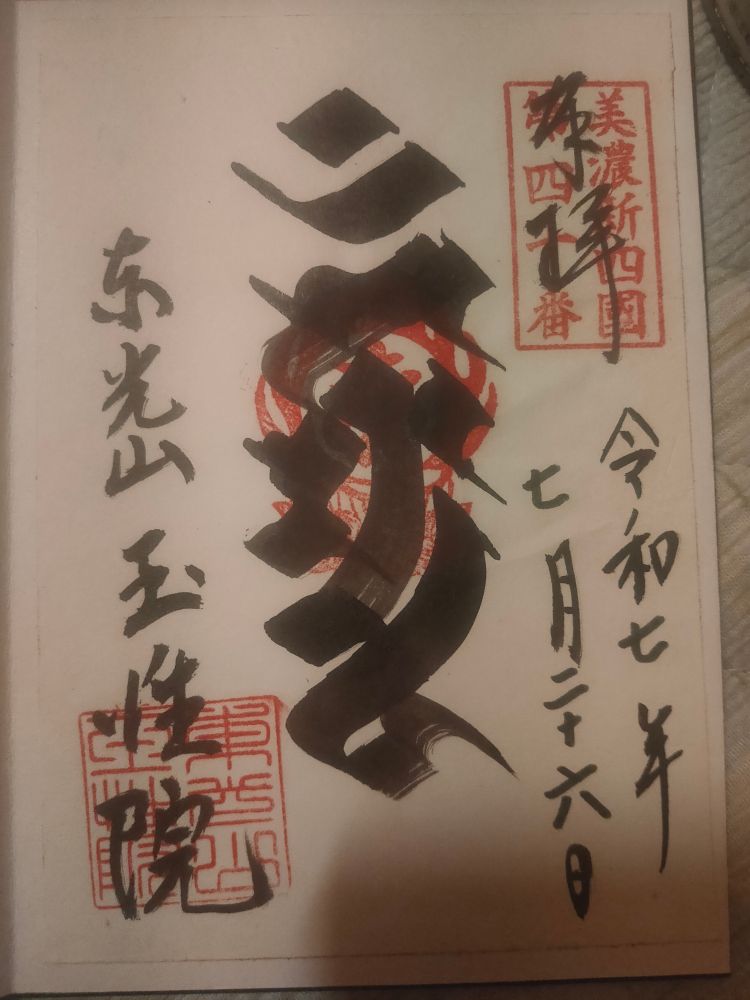 奉拝
美濃新四國
第四十番
令和七年
七月二十六日
東光山 玉性院
東光山
玉性院